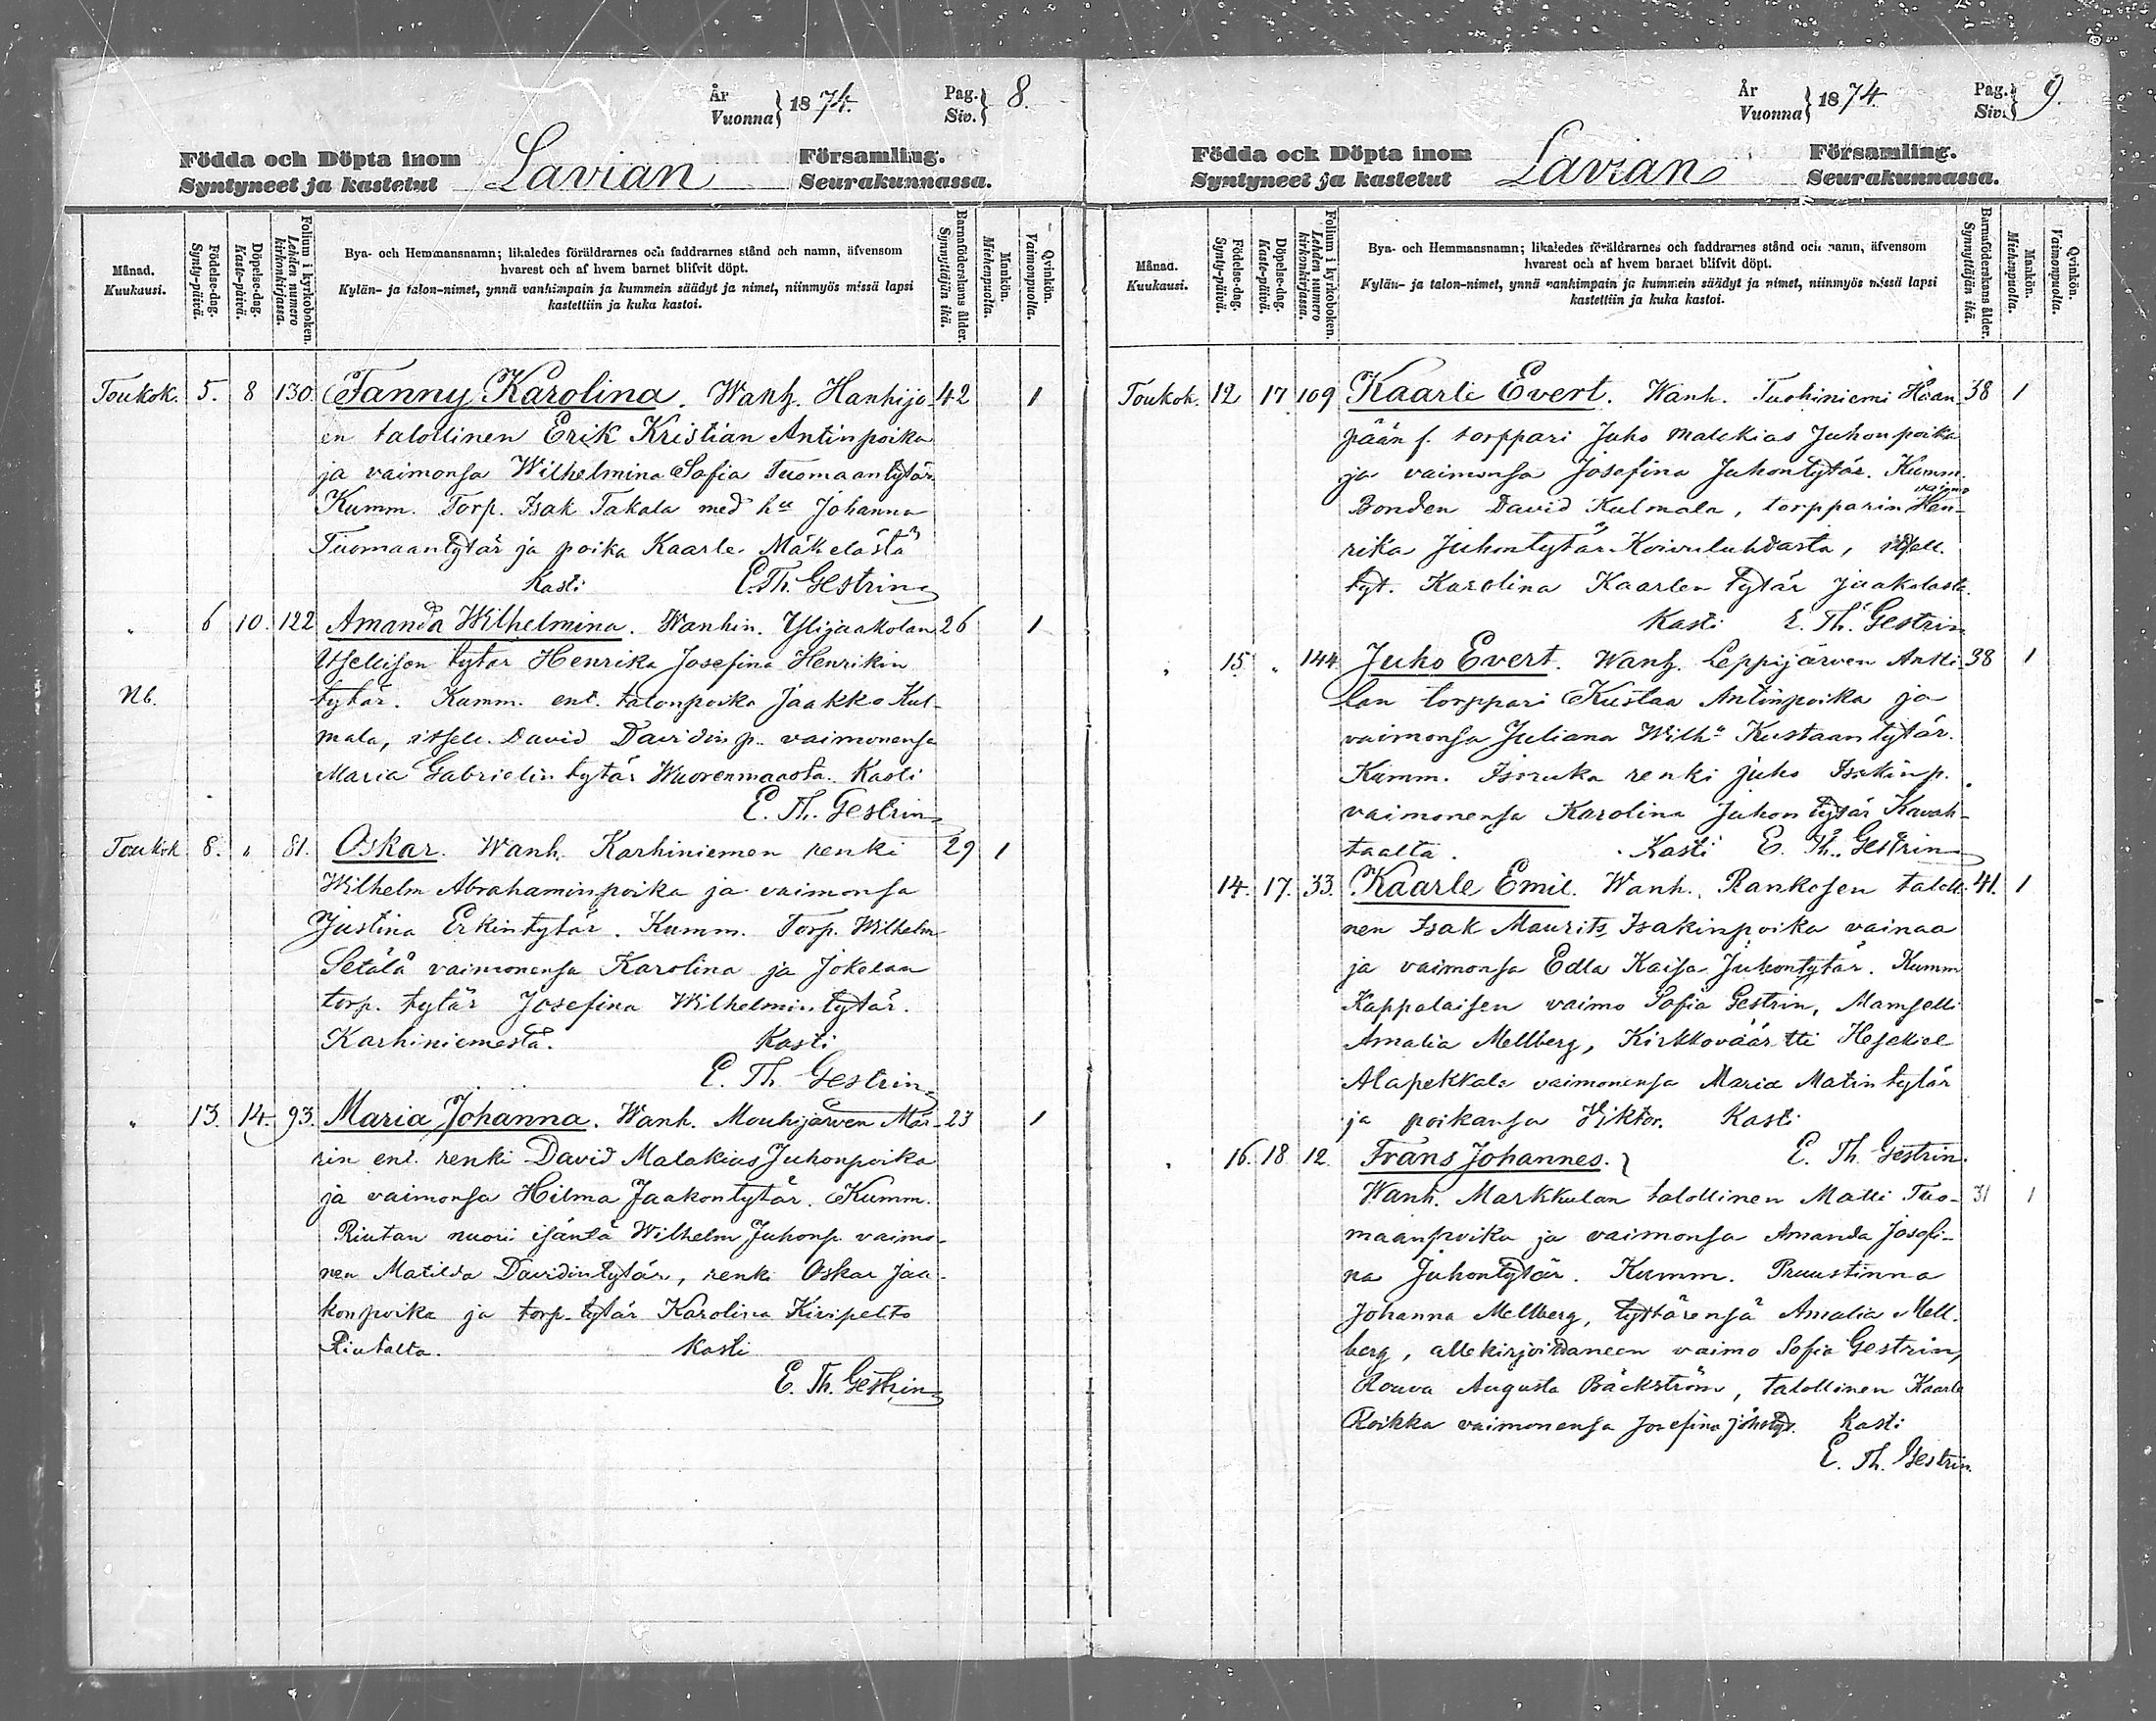 År
Vuonna } 1874.
Pag.
Siv. } 8.
Födda och Döpta inom
Syntyneet ja kastetut
Lavian
Församling.
Seurakunnassa.
Månad.
Kuukausi.
Födelse-dag.
Synty-päivä.
Döpelse-dag.
Kaste-päivä.
Folium i kyrkoboken.
Lehden numero kirkonkirjassa.
Bya- och Hemmansnamn; likaledes föräldrarnes och faddrarnes stånd och namn, äfvensom
hvarest och af hvem barnet blifvit döpt.
Kylän- ja talon-nimet, ynnä vanhimpain ja kummein säädyt ja nimet, niinmyös missä lapsi
kastettiin ja kuka kastoi.
Barnaföderskans ålder.
Synnyttäjän ikä.
Mankön.
Miehenpuolta.
Qvinkön.
Vaimonpuolta.
Toukok. 5. 8 130. Fanny Karolina. Wanh. Hanhijo- 42 1
en talollinen Erik Kristian Antinpoika
ja vaimonsa Wilhelmina Sofia Tuomaantytär.
Kumm. Torp. Isak Takala med hu Johanna
Tuomaantytär ja poika Kaarle Mäkelästä
Kasti E. Th. Gestrin
" 6 10. 122 Amanda Wilhelmina. Wanhin. Ylijaakolan 26 1
Itsellisen tytär Henrika Josefina Henrikin
Nb. tytär. Kumm. ent. talonpoika Jaakko Kul-
mala, itsell. David Davidin p. vaimonensa
Maria Gabrielin tytär Wuorenmaasta. Kasti
E. Th. Gestrin
Toukok. 8. " 81. Oskar. Wanh. Karhiniemen renki 29 1
Wilhelm Abrahaminpoika ja vaimonsa
Justina Erkintytär. Kumm. Torp. Wilhelm
Setälä vaimonensa Karolina ja Jokelan
torp. tytär Josefina Wilhelmintytär.
Karhiniemestä. Kasti
E. Th. Gestrin
" 13. 14. 93. Maria Johanna. Wanh. Mouhijärven Mär- 23 1
rin ent. renki David Malakias Juhonpoika
ja vaimonsa Hilma Jaakontytär. Kumm.
Riutan nuori isäntä Wilhelm Juhonp. vaimo-
nen Matilda Davidintytär, renki Oskar Jaa-
konpoika ja torp. tytär Karolina Kivipelto
Riutalta. Kasti
E. Th. Gestrin
År
Vuonna } 1874.
Pag.
Siv. } 9.
Födda ock Döpta inom
Syntyneet ja kastetut
Lavian
Församling.
Seurakunnassa.
Månad.
Kuukausi.
Födelse-dag.
Synty-päivä.
Döpelse-dag.
Kaste-päivä.
Folium i kyrkoboken.
Lehden numero kirkonkirjassa.
Bya- och Hemmansnamn; likaledes föräldrarnes och faddrarnes stånd och namn, äfvensom
hvarest och af hvem barnet blifvit döpt.
Kylän- ja talon-nimet, ynnä vanhimpain ja kummein säädyt ja nimet, niinmyös missä lapsi
kastettiin ja kuka kastoi.
Barnaföderskans ålder.
Synnyttäjän ikä.
Mankön.
Miehenpuolta.
Qvinkön.
Vaimonpuolta.
Toukok. 12 17 109 Kaarle Evert. Wanh. Tuohiniemi Haan- 38 1
pään f. torppari Juho Malekias Juhonpoika
ja vaimonsa Josefina Juhontytär. Kumm.
Bonden David Kulmala, torpparin vaimo Hen-
rika Juhontytär Koivuluhdasta, itsell.
tyt. Karolina Kaarlen tytär Jaakolasta.
Kasti E. Th. Gestrin
" 15. " 144 Juho Evert. Wanh. Leppijärven Antti- 38 1
lan torppari Kustaa Antinpoika ja
vaimonsa Juliana Wilha Kustaantytär.
Kumm. renki Juho Isakinp.
vaimonensa Karolina Juhontytär Kavah-
taalta. Kasti E. Th. Gestrin
14. 17. 33. Kaarle Emil. Wanh. Rankosen talolli- 41. 1
nen Isak Maurits Isakinpoika vainaa
ja vaimonsa Edla Kaisa Juhontytär. Kumm
Kappalaisen vaimo Sofia Gestrin, Mamselli
Amalia Mellberg, Kirkkoväärtti Hesekiel
Alapekkala vaimonensa Maria Matintytär
ja poikansa Viktor. Kasti
" 16. 18 12. Frans Johannes. } E. Th. Gestrin.
Wanh. Markkulan talollinen Matti Tuo- 31 1
maanpoika ja vaimonsa Amanda Josefi-
na Juhontytär. Kumm. Pruustinna
Johanna Mellberg, tyttärensä Amalia Mell-
berg, allekirjoittaneen vaimo Sofia Gestrin,
Rouva Augusta Bäckström, talollinen Kaarle
Roikka vaimonensa Josefina Kasti
E. Th. Gestrin.